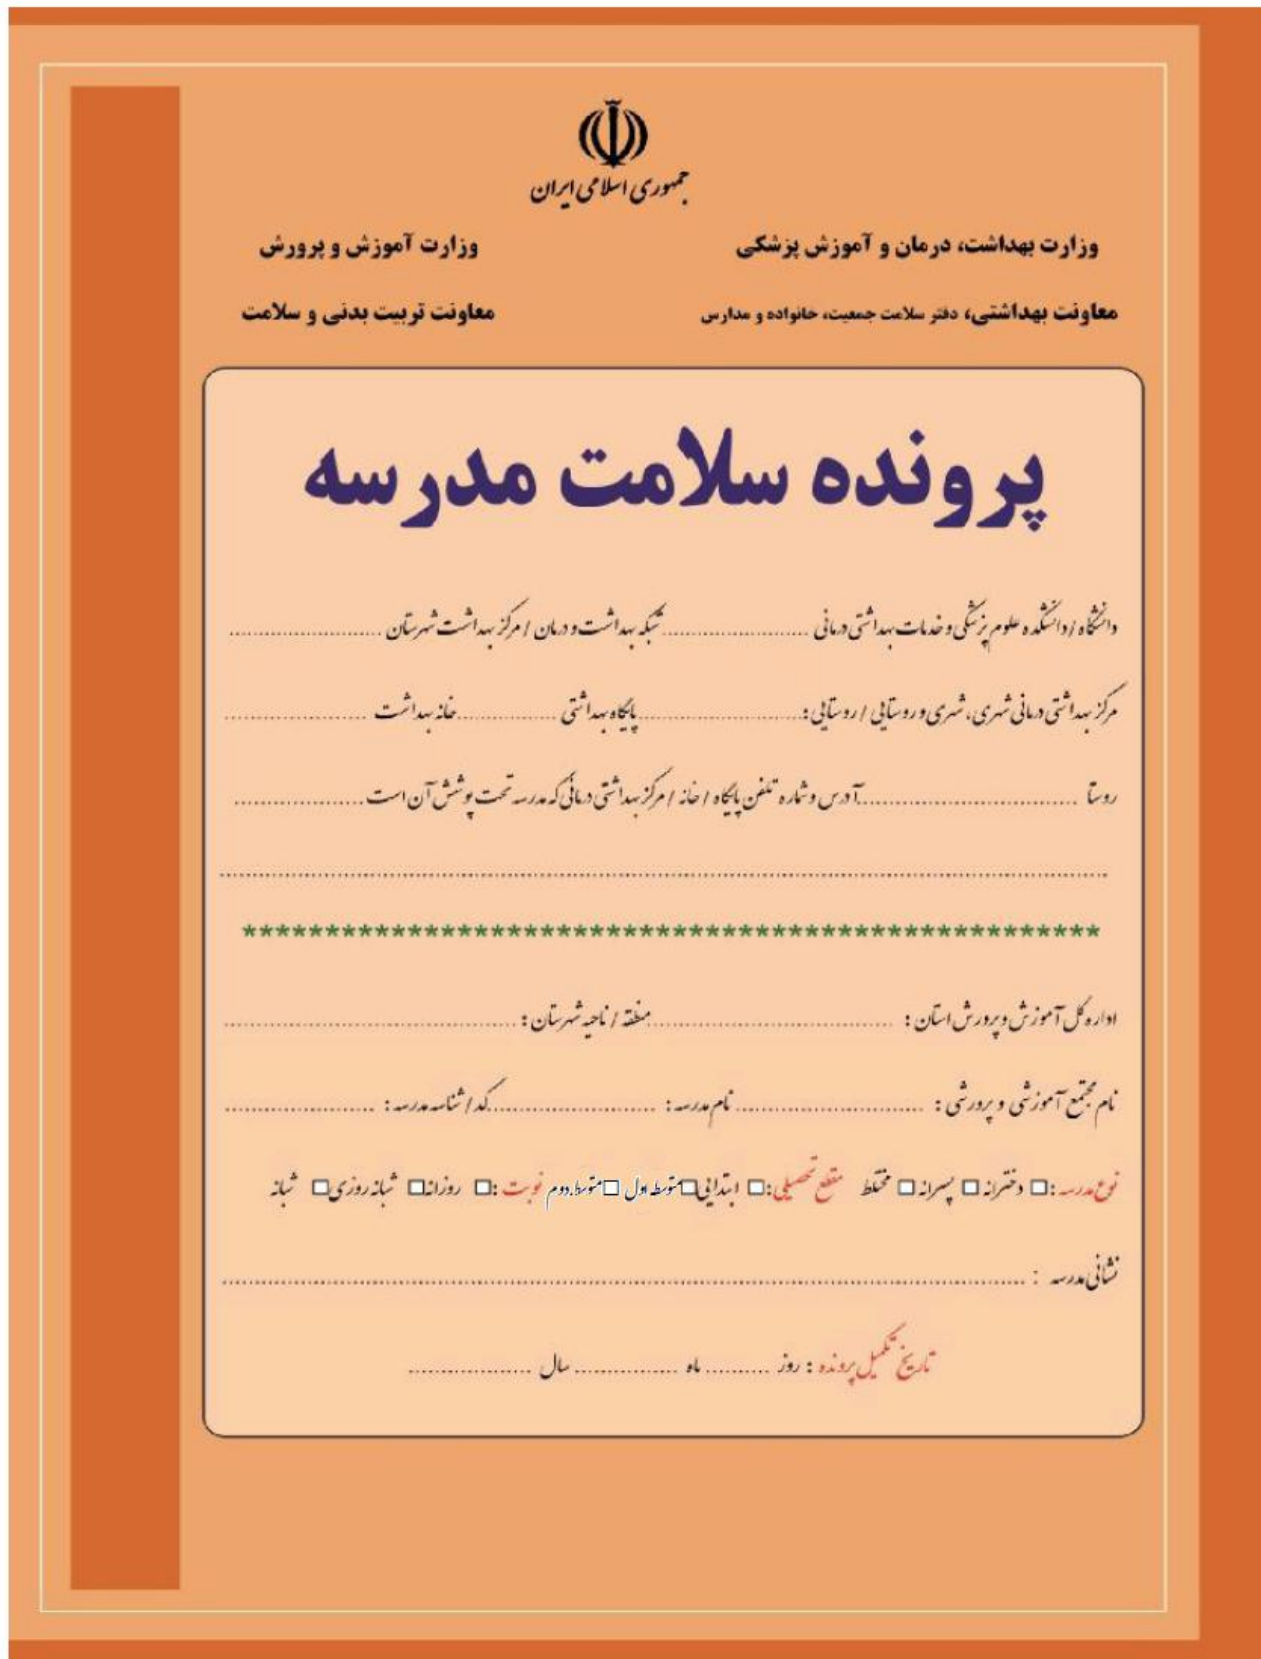 جمهوری اسلامی ایران
وزارت بهداشت، درمان و آموزش پزشکی
وزارت آموزش و پرورش
معاونت بهداشتی، دفتر سلامت جمعیت، خانواده و مدارس
معاونت تربیت بدنی و سلامت
پرونده سلامت مدرسه
دانشگاه / دانشکده علوم پزشکی و خدمات بهداشتی درمانی ........................ شبکه بهداشت و درمان / مرکز بهداشت شهرستان ........................
مرکز بهداشتی درمانی شهری، شهری و روستایی / روستایی: ........................ پایگاه بهداشتی ................ خانه بهداشت ........................
روستا .................................... آدرس و شماره تلفن پایگاه / خانه / مرکز بهداشتی درمانی که مدرسه تحت پوشش آن است ....................
................................................................................................................................
****************************************************
اداره کل آموزش و پرورش استان: ........................................ منطقه / ناحیه شهرستان: ................................................
نام مجتمع آموزشی و پرورشی: .............................. نام مدرسه: ........................... کد / شناسه مدرسه: ........................
نوع مدرسه: □ دخترانه □ پسرانه □ مختلط مقطع تحصیلی: □ ابتدایی □ متوسطه اول □ متوسطه دوم نوبت: □ روزانه □ شبانه روزی □ شبانه
نشانی مدرسه : ................................................................................................................
تاریخ تکمیل پرونده: روز .......... ماه ................ سال ....................